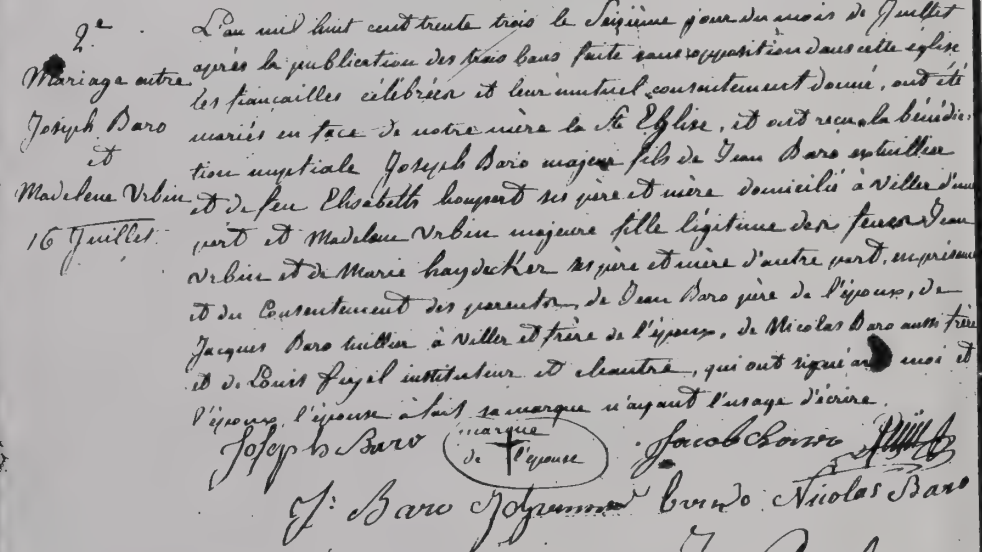 2.e
Mariage entre
Joseph Baro
et
Madelene Urbin
16 Juillet.
L'an mil huit cent trente trois le Seizième jour du mois de Juillet
après la publication des trois bans faite sans opposition dans cette église
les fiançailles célébrées et leur mutuel consentement donné, ont été
mariés en face de notre mère la Ste Eglise, et ont recu la bénédic-
tion nuptiale Joseph Baro majeur fils de Jean Baro
et de feu Elisabeth houpert ses père et mère domicilié à Viller d'une
part et Madelene Urbin majeure fille légitime des feus Jean
Urbin et de Marie haydecker ses père et mère d'autre part, en présence
et du Consentement des parents, de Jean Baro père de l'époux, de
Jacques Baro à Viller et frère de l'époux, de Nicolas Baro aussi frère
et de Louis instituteur et chantre, qui ont signé moi et
l'époux, l'épouse a fait sa marque n'ayant l'usage d'écrire.
Joseph Baro marque de l'épouse Jacob
J. Baro Nicolas Baro